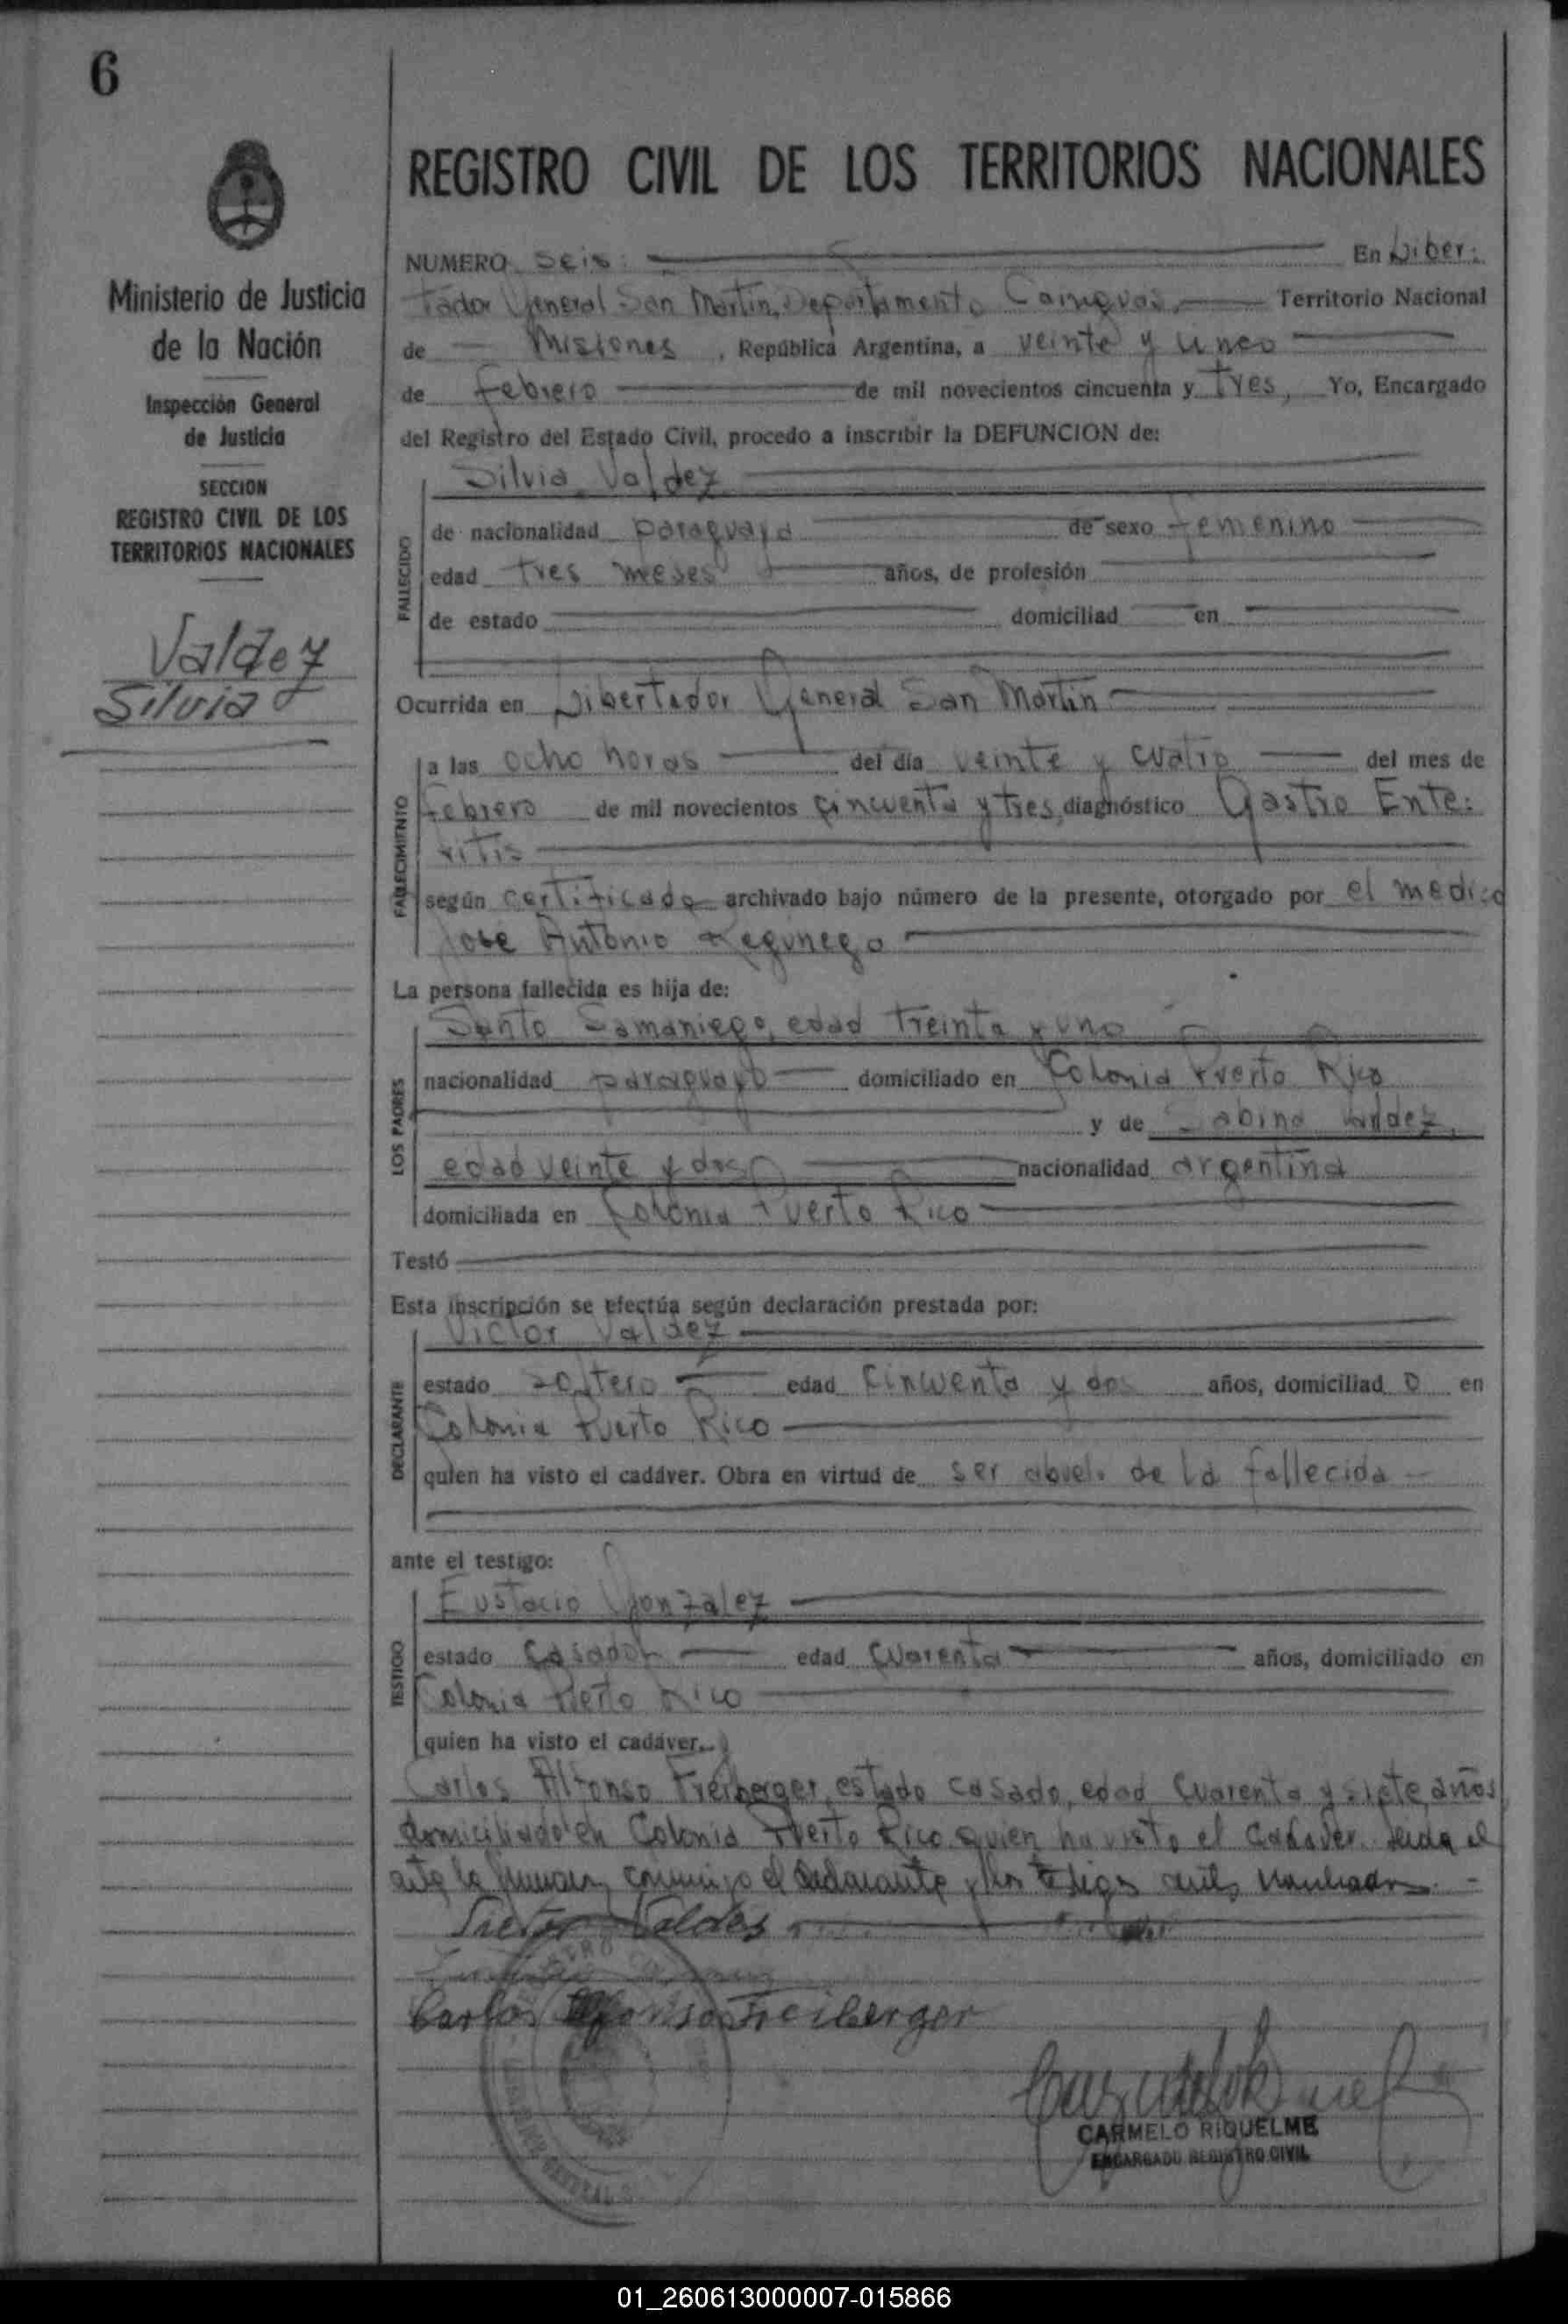 6
Ministerio de Justicia
de la Nación
Inspección General
de Justicia
SECCION
REGISTRO CIVIL DE LOS
TERRITORIOS NACIONALES
Valdez
Silvia
REGISTRO CIVIL DE LOS TERRITORIOS NACIONALES
NUMERO seis: En Liber:
tador General San Martin, Departamento Cainguas, Territorio Nacional
de Misiones, República Argentina, a veinte y cinco
de febrero de mil novecientos cincuenta y tres, Yo, Encargado
del Registro del Estado Civil, procedo a inscribir la DEFUNCION de:
Silvia Valdez
FALLECIDO
de nacionalidad paraguaya de sexo femenino
edad tres meses años, de profesión
de estado domiciliad en
Ocurrida en Libertador General San Martin
FALLECIMIENTO
a las ocho horas del día veinte y cuatro del mes de
febrero de mil novecientos cincuenta y tres, diagnóstico Gastro Ente:
ritis
según certificado archivado bajo número de la presente, otorgado por el medico
Jose Antonio
La persona fallecida es hija de:
LOS PADRES
Santo Samaniego, edad treinta y uno
nacionalidad paraguayo domiciliado en Colonia Puerto Rico
y de Sabina Valdez,
edad veinte y dos nacionalidad argentina
domiciliada en Colonia Puerto Rico
Testó
Esta inscripción se efectúa según declaración prestada por:
DECLARANTE
Victor Valdez
estado soltero edad cincuenta y dos años, domiciliad o en
Colonia Puerto Rico
quien ha visto el cadáver. Obra en virtud de ser abuelo de la fallecida
ante el testigo:
TESTIGO
Eustacio Gonzalez
estado Casado edad cuarenta años, domiciliado en
Colonia Puerto Rico
quien ha visto el cadáver.
Carlos Alfonso Freiberger, estado casado, edad cuarenta y siete años
domiciliado en Colonia Puerto Rico quien ha visto el cadaver. Leida el
acta la firmaron conmigo el declarante y los testigos
Victor Valdes
Carlos Alfonso Freiberger
CARMELO RIQUELME
ENCARGADO REGISTRO CIVIL
01_260613000007-015866